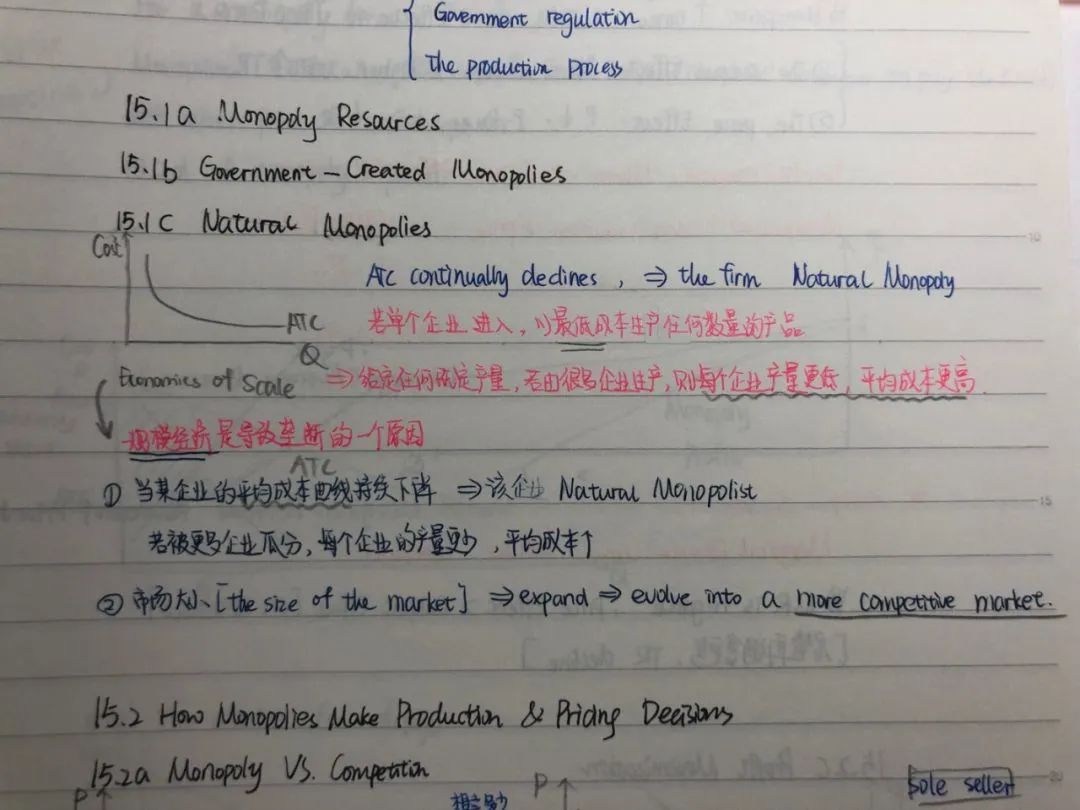 Government regulation
The production process
15.1a Monopoly Resources
15.1b Government-Created Monopolies
15.1c Natural Monopolies
Cost
ATC continually declines, ⇒ the firm Natural Monopoly
ATC
若单个企业进入，以最低成本生产任何数量的产品
Q
Economics of Scale
⇒ 给定任何既定产量，若由很多企业生产，则每个企业产量更低，平均成本更高
规模经济是导致垄断的一个原因
ATC
① 当某企业的平均成本曲线持续下降 ⇒ 该企业 Natural Monopolist
若被更多企业瓜分，每个企业的产量更少，平均成本↑
② 市场大小 [the size of the market] ⇒ expand ⇒ evolve into a more competitive market.
15.2 How Monopolies Make Production & Pricing Decisions
15.2a Monopoly VS. Competition
P
P
Sole seller